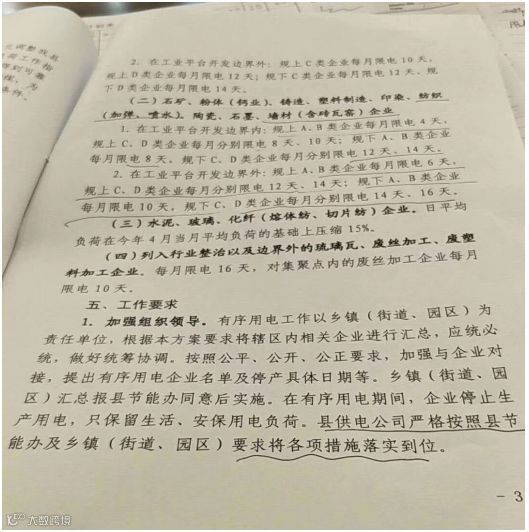 2. 在工业平台开发边界外：规上C类企业每月限电10天，
规上D类企业每月限电12天；规下C类企业每月限电12天，规
下D类企业每月限电14天。
（二）石矿、粉体（钙业）、铸造、塑料制造、印染、纺织
（加弹、喷水）、陶瓷、石墨、墙材（含砖瓦窑）企业
1. 在工业平台开发边界内：规上A、B类企业每月限电4天，
规上C、D类企业每月分别限电8天、10天；规下A、B类企业
每月限电8天，规下C、D类企业每月分别限电12天、14天。
2. 在工业平台开发边界外：规上A、B类企业每月限电6天，
规上C、D类企业每月分别限电12天、14天；规下A、B类企业
每月限电10天，规下C、D类企业每月分别限电14天、16天。
（三）水泥、玻璃、化纤（熔体纺、切片纺）企业。日平均
负荷在今年4月当月平均负荷的基础上压缩15%。
（四）列入行业整治以及边界外的琉璃瓦、废丝加工、废塑
料加工企业。每月限电16天，对集聚点内的废丝加工企业每月
限电10天。
五、工作要求
1. 加强组织领导。有序用电工作以乡镇（街道、园区）为
责任单位，根据本方案要求将辖区内相关企业进行汇总，应统必
统，做好统筹协调。按照公平、公开、公正要求，加强与企业对
接，提出有序用电企业名单及停产具体日期等。乡镇（街道、园
区）汇总报县节能办同意后实施。在有序用电期间，企业停止生
产用电，只保留生活、安保用电负荷。县供电公司严格按照县节
能办及乡镇（街道、园区）要求将各项措施落实到位。
- 3
大数跨境